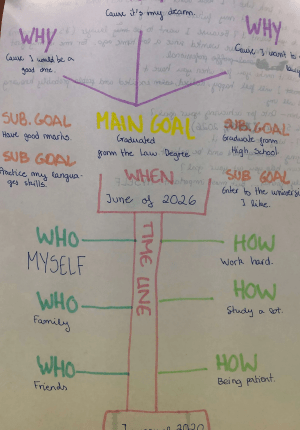 Cause it's my dream.
WHY
Cause I would be a
good one.
WHY
Cause I want to
SUB. GOAL
Have good marks.
SUB GOAL
Practice my langua-
ges skills.
MAIN GOAL
Graduated
from the Law Degree
SUB. GOAL
Graduate from
High School
SUB GOAL
Enter to the universi
I like.
WHEN
June of 2026
TIME LINE
WHO
MYSELF
WHO
Family
WHO
Friends
HOW
Work hard.
HOW
Study a lot.
HOW
Being patient.
2020